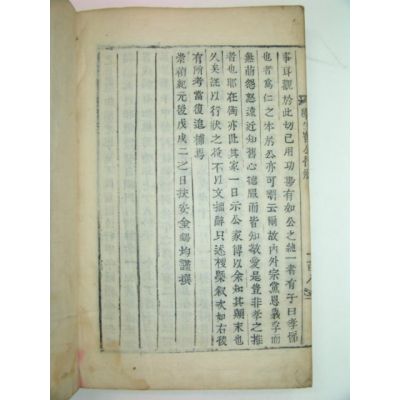 事耳觀於此切己用功夫有如公之純一者有子曰孝悌
也者爲仁之本於公亦可謂云爾故內外宗黨恩義孚而
無前怨怒遠近知舊心德服而皆知敬愛是豈非孝之推
者也耶在衡亦世其家一日示公家傳以余知其顚末也
久矣託以行狀之 不以文拙辭只述梗槩叙次如右後
有所考當復追補焉
崇禎紀元後戊戌二之日扶安金錫均謹撰